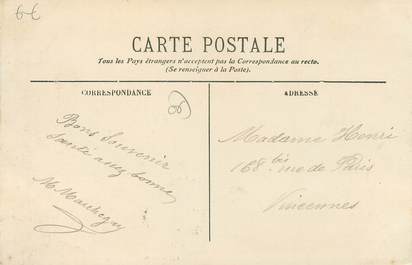 6€
CARTE POSTALE
Tous les Pays étrangers n'acceptent pas la Correspondance au recto.
(Se renseigner à la Poste).
CORRESPONDANCE
Bons Souvenir
Santé assez bonne
ADRESSE
Madame Henri
168 bis rue de Paris
Vincennes